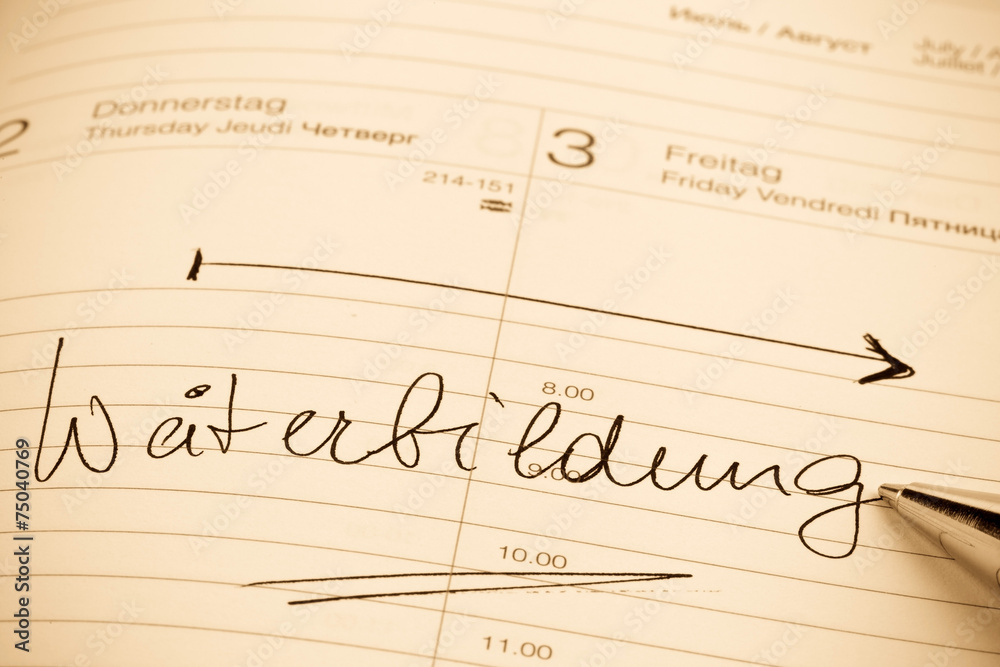 Июль / Август
July / A
Juillet /
2
Donnerstag
Thursday Jeudi Четверг
214-151
3
Freitag
Friday Vendredi Пятница
8.00
Weiterbildung
9.00
10.00
11.00
Adobe Stock | #75040769